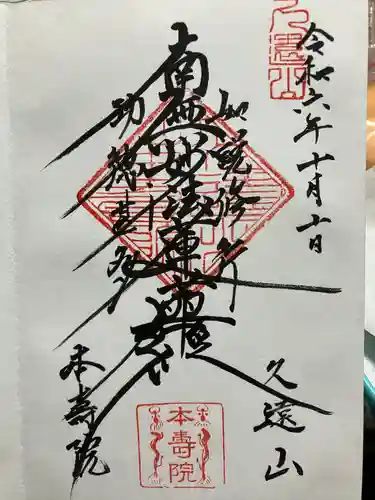 久遠山
令和六年十月十日
如説修行
南無妙法蓮華経
功徳甚多
久遠山
本壽院
本壽院